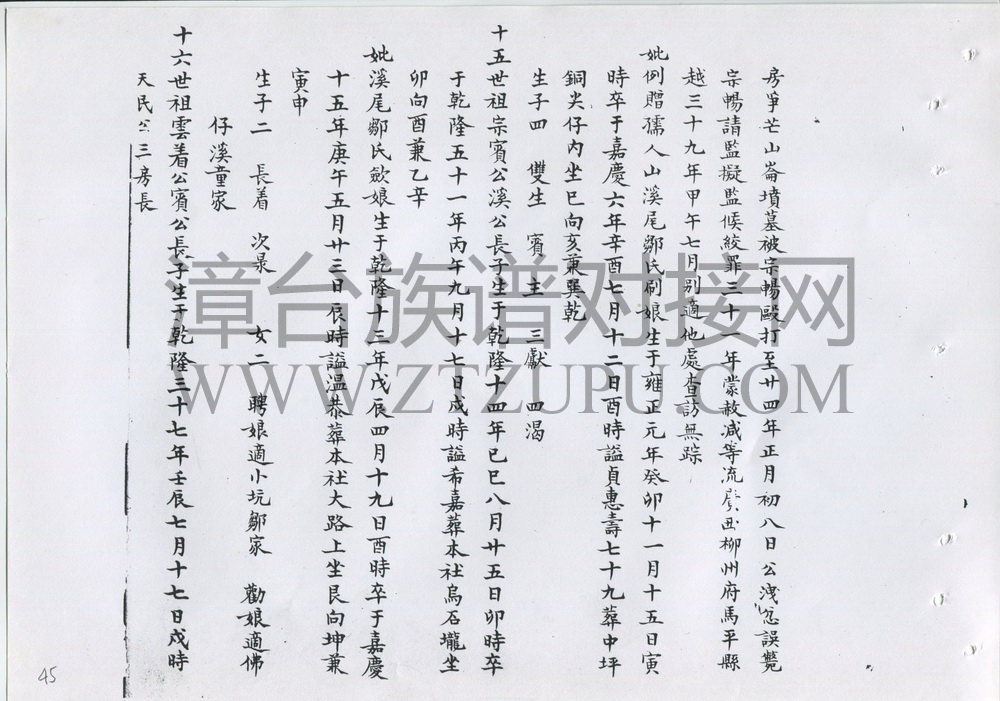 房爭芒山崙墳墓被宗暢毆打至廿四年正月初八日公洩忿誤斃
宗暢請監擬監候絞罪三十一年蒙赦减等流西柳州府馬平縣
越三十九年甲午七月别適他處查訪無踪
妣例贈孺人山溪尾鄒氏刷娘生于雍正元年癸卯十一月十五日寅
時卒于嘉慶六年辛酉七月十二日酉時謚貞惠壽七十九葬中坪
銅尖仔内坐巳向亥兼巽乾
生子四 雙生 賓 主 三獻 四渴
十五世祖宗賓公溪公長子生于乾隆十四年己巳八月廿五日卯時卒
于乾隆五十一年丙午九月十七日戍時謚希嘉葬本社烏石壠坐
卯向酉兼乙辛
妣溪尾鄒氏歛娘生于乾隆十三年戊辰四月十九日酉時卒于嘉慶
十五年庚午五月廿三日辰時謚温恭葬本社大路上坐艮向坤兼
寅申
生子二 長着 次彔 女二 聘娘適小坑鄒家 勸娘適佛
仔溪童家
十六世祖雲着公賓公長子生于乾隆三十七年壬辰七月十七日戍時
天民公三房長
45
漳台族谱对接网
WWW.ZTZUPU.COM